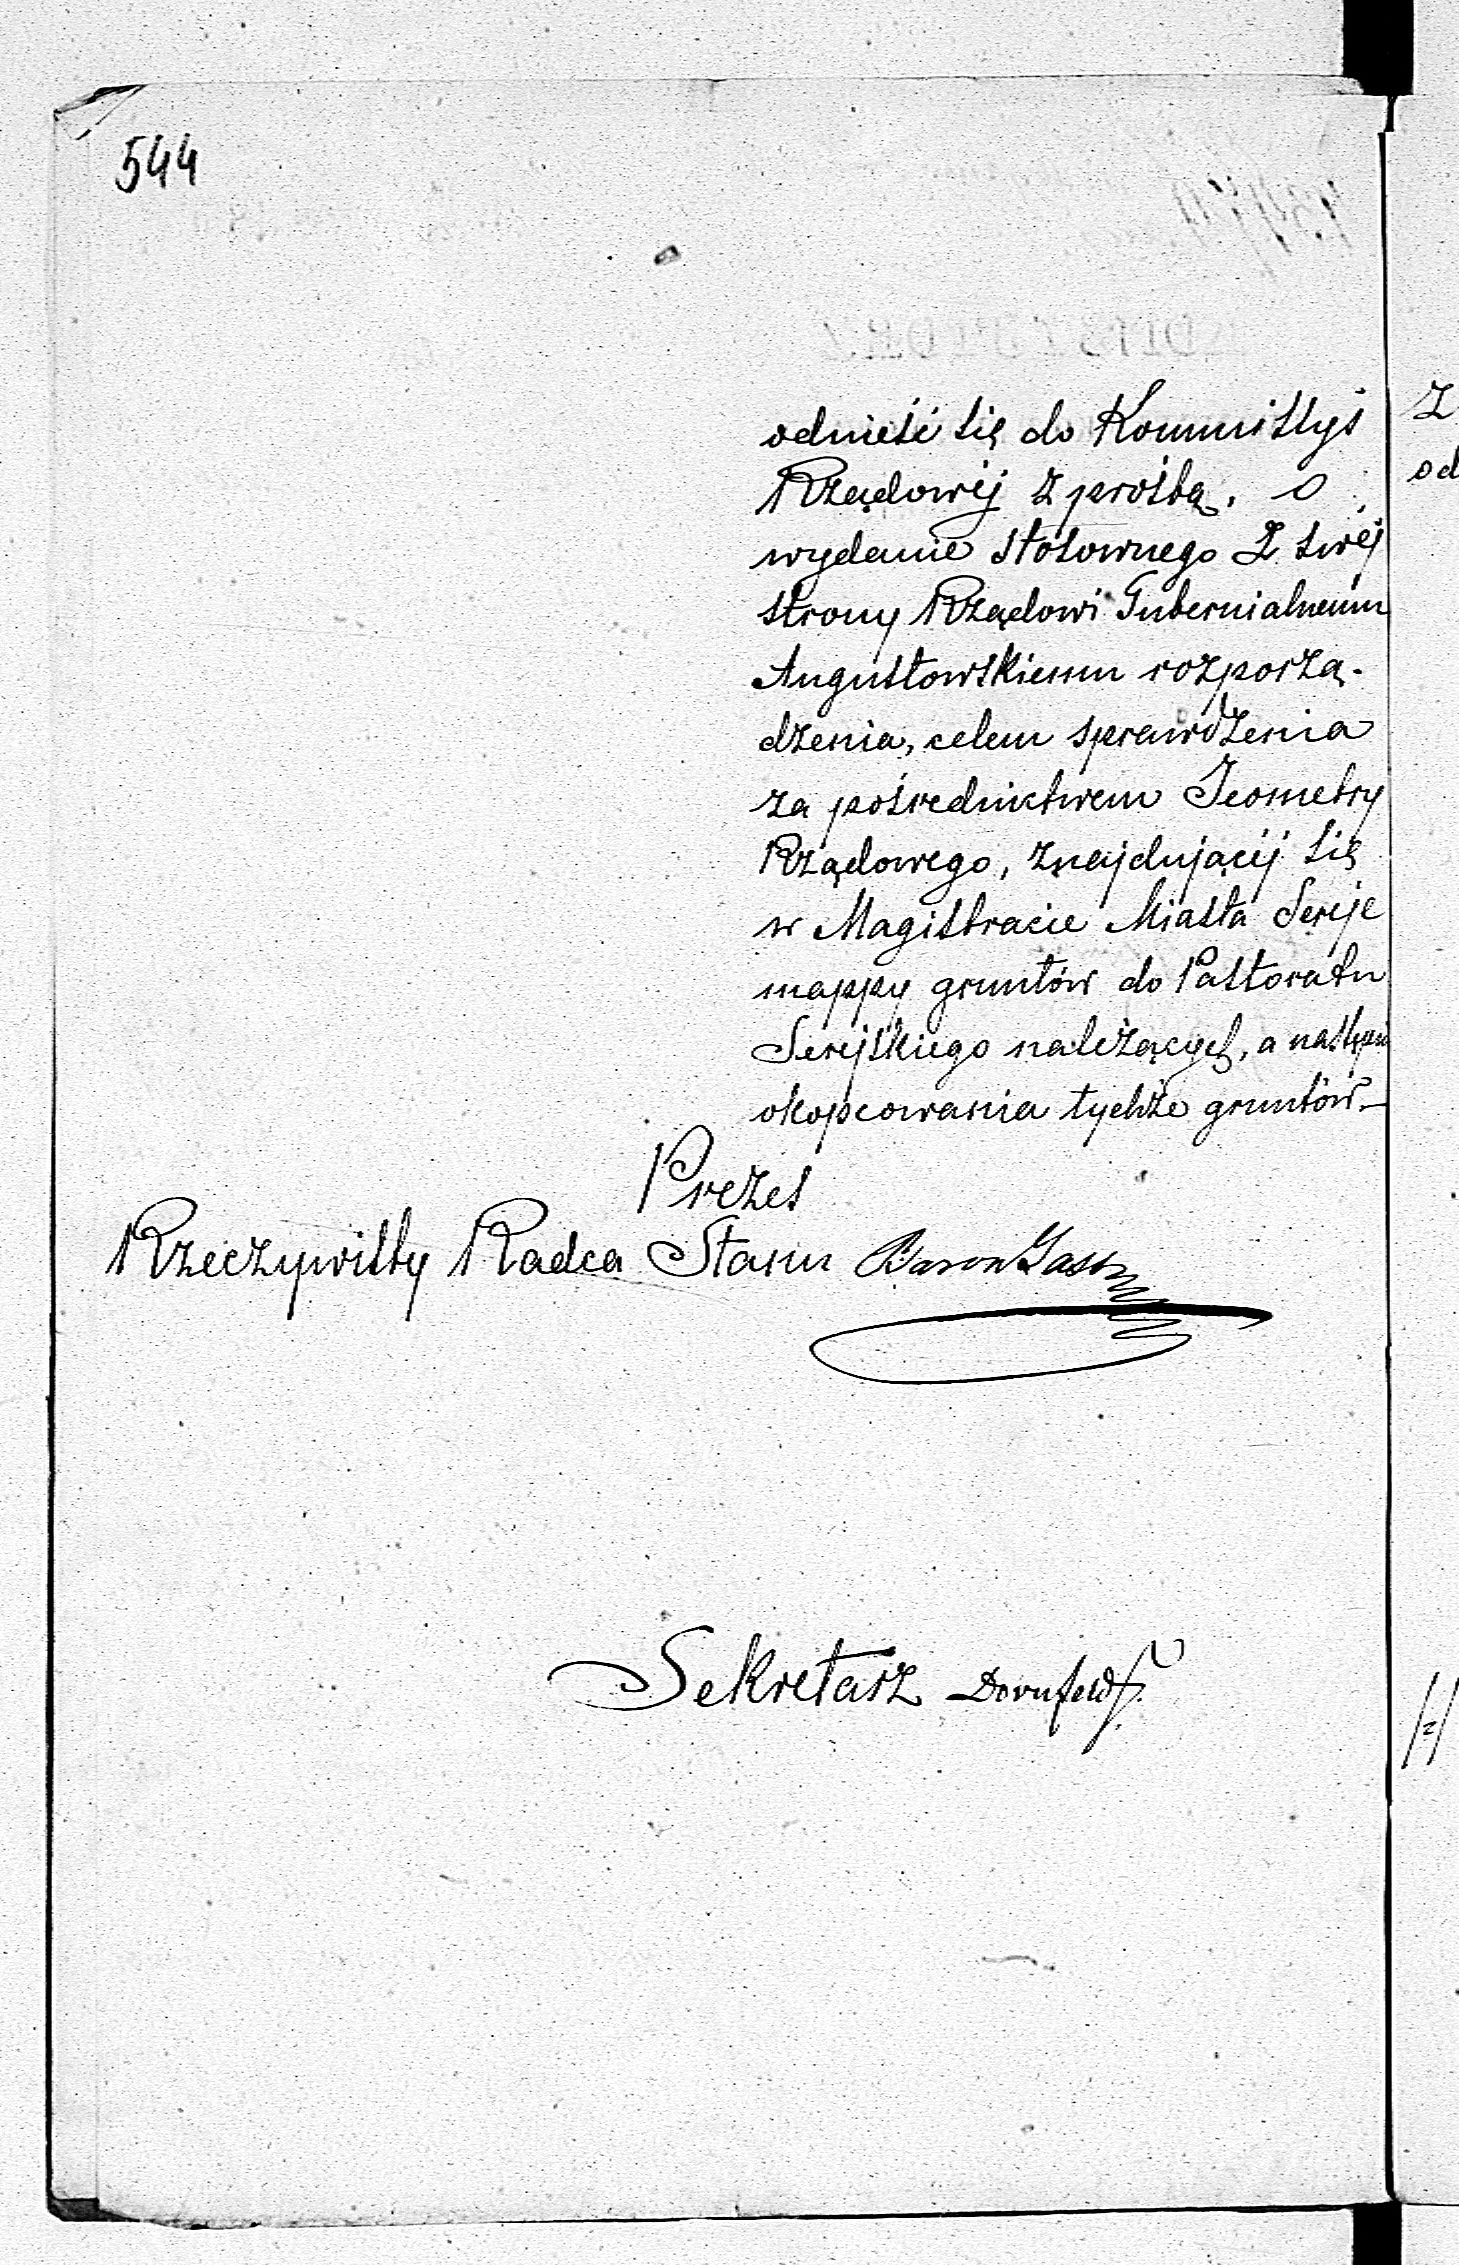 544
odnieść się do Kommissyi
Rządowéj z prośbą, o
wydanie stosownego z swéj
strony Rządowi Gubernialnemu
Augustowskiemu rozporzą-
dzenia, celem sprawdzenia
za pośrednictwem Jeometry
Rządowego, znajdującéj się
w Magistracie Miasta Sereje
mappy gruntów do Pastoratu
Serejskiego należących, a następnie
okopcowania tychże gruntów.—
Prezes
Rzeczywisty Radca Stanu Baron
Sekretarz Dornfeld